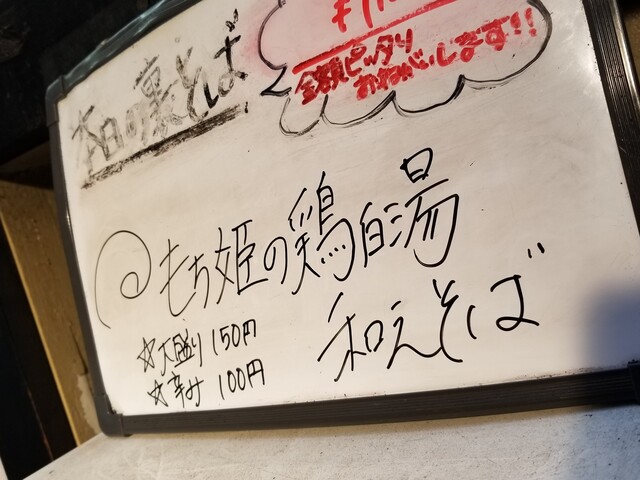 本日の裏そば
金額ピッタリ
おねがいします!!
@もち姫の鶏白湯
和えそば
☆大盛り 150円
☆辛み 100円